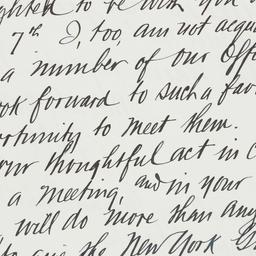 to be with you
7th I, too, am not acqu
a number of our Off
ook forward to such a fav
ortunity to meet them.
our thoughtful act in c
a meeting, and in your
will do more than any
to give the New York